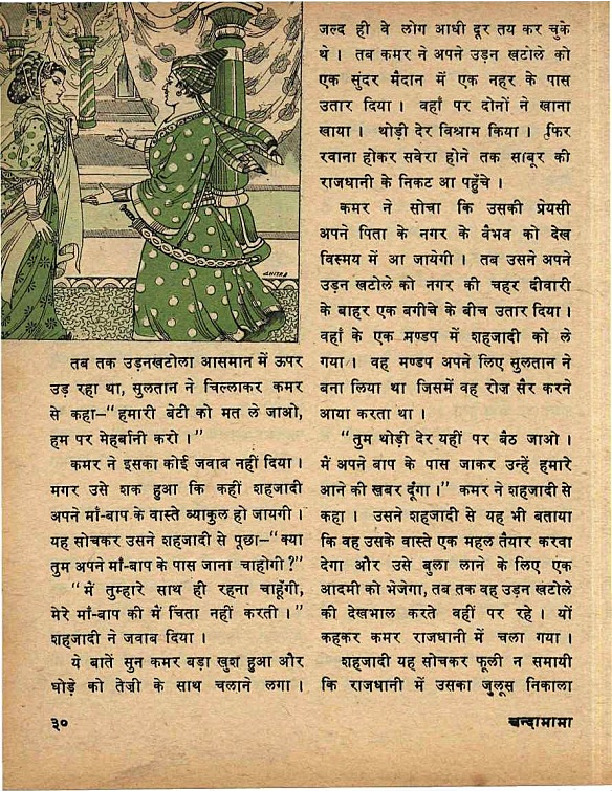 तब तक उड़नखटोला आसमान में ऊपर
उड़ रहा था, सुलतान ने चिल्लाकर कमर
से कहा–"हमारी बेटी को मत ले जाओ,
हम पर मेहर्बानी करो ।"
कमर ने इसका कोई जवाब नहीं दिया ।
मगर उसे शक हुआ कि कहीं शहजादी
अपने माँ-बाप के वास्ते व्याकुल हो जायगी ।
यह सोचकर उसने शहजादी से पूछा–"क्या
तुम अपने माँ-बाप के पास जाना चाहोगी ?"
"में तुम्हारे साथ ही रहना चाहूँगी,
मेरे माँ-बाप की में चिंता नहीं करती ।"
शहजादी ने जवाब दिया ।
ये बातें सुन कमर बड़ा खुश हुआ और
घोड़े को तेज़ी के साथ चलाने लगा ।
जल्द ही वे लोग आधी दूर तय कर चुके
थे । तब कमर ने अपने उड़न खटोले को
एक सुंदर मैदान में एक नहर के पास
उतार दिया । वहाँ पर दोनों ने खाना
खाया । थोड़ी देर विश्राम किया । फिर
रवाना होकर सवेरा होने तक साबूर की
राजधानी के निकट आ पहुँचे ।
कमर ने सोचा कि उसकी प्रेयसी
अपने पिता के नगर के वैभव को देख
विस्मय में आ जायेगी । तब उसने अपने
उड़न खटोले को नगर की चहर दीवारी
के बाहर एक बगीचे के बीच उतार दिया ।
वहाँ के एक मण्डप में शहजादी को ले
गया । वह मण्डप अपने लिए सुलतान ने
बना लिया था जिसमें वह रोज़ सैर करने
आया करता था ।
"तुम थोड़ी देर यहीं पर बैठ जाओ ।
में अपने बाप के पास जाकर उन्हें हमारे
आने की खबर दूँगा ।" कमर ने शहजादी से
कहा । उसने शहजादी से यह भी बताया
कि वह उसके वास्ते एक महल तैयार करवा
देगा और उसे बुला लाने के लिए एक
आदमी को भेजेगा, तब तक वह उड़न खटोले
की देखभाल करते वहीं पर रहे । यों
कहकर कमर राजधानी में चला गया ।
शहजादी यह सोचकर फूली न समायी
कि राजधानी में उसका जुलूस निकाला
३०
चन्दामामा
CHITRA